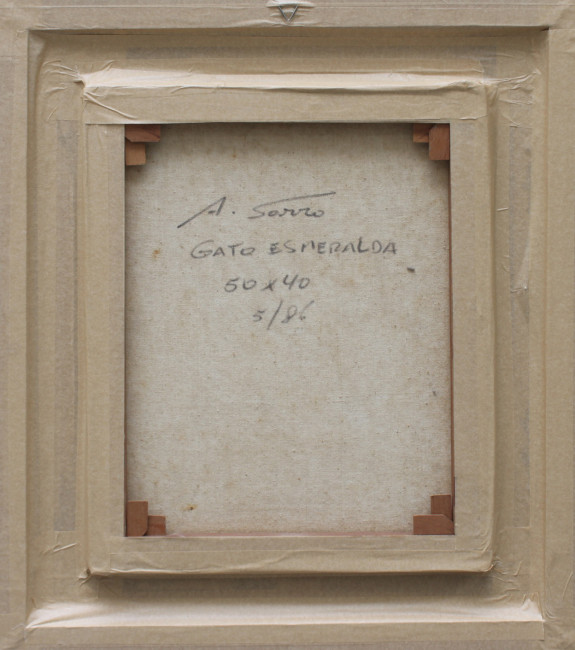 A. Sorro
GATO ESMERALDA
50 x 40
5/86